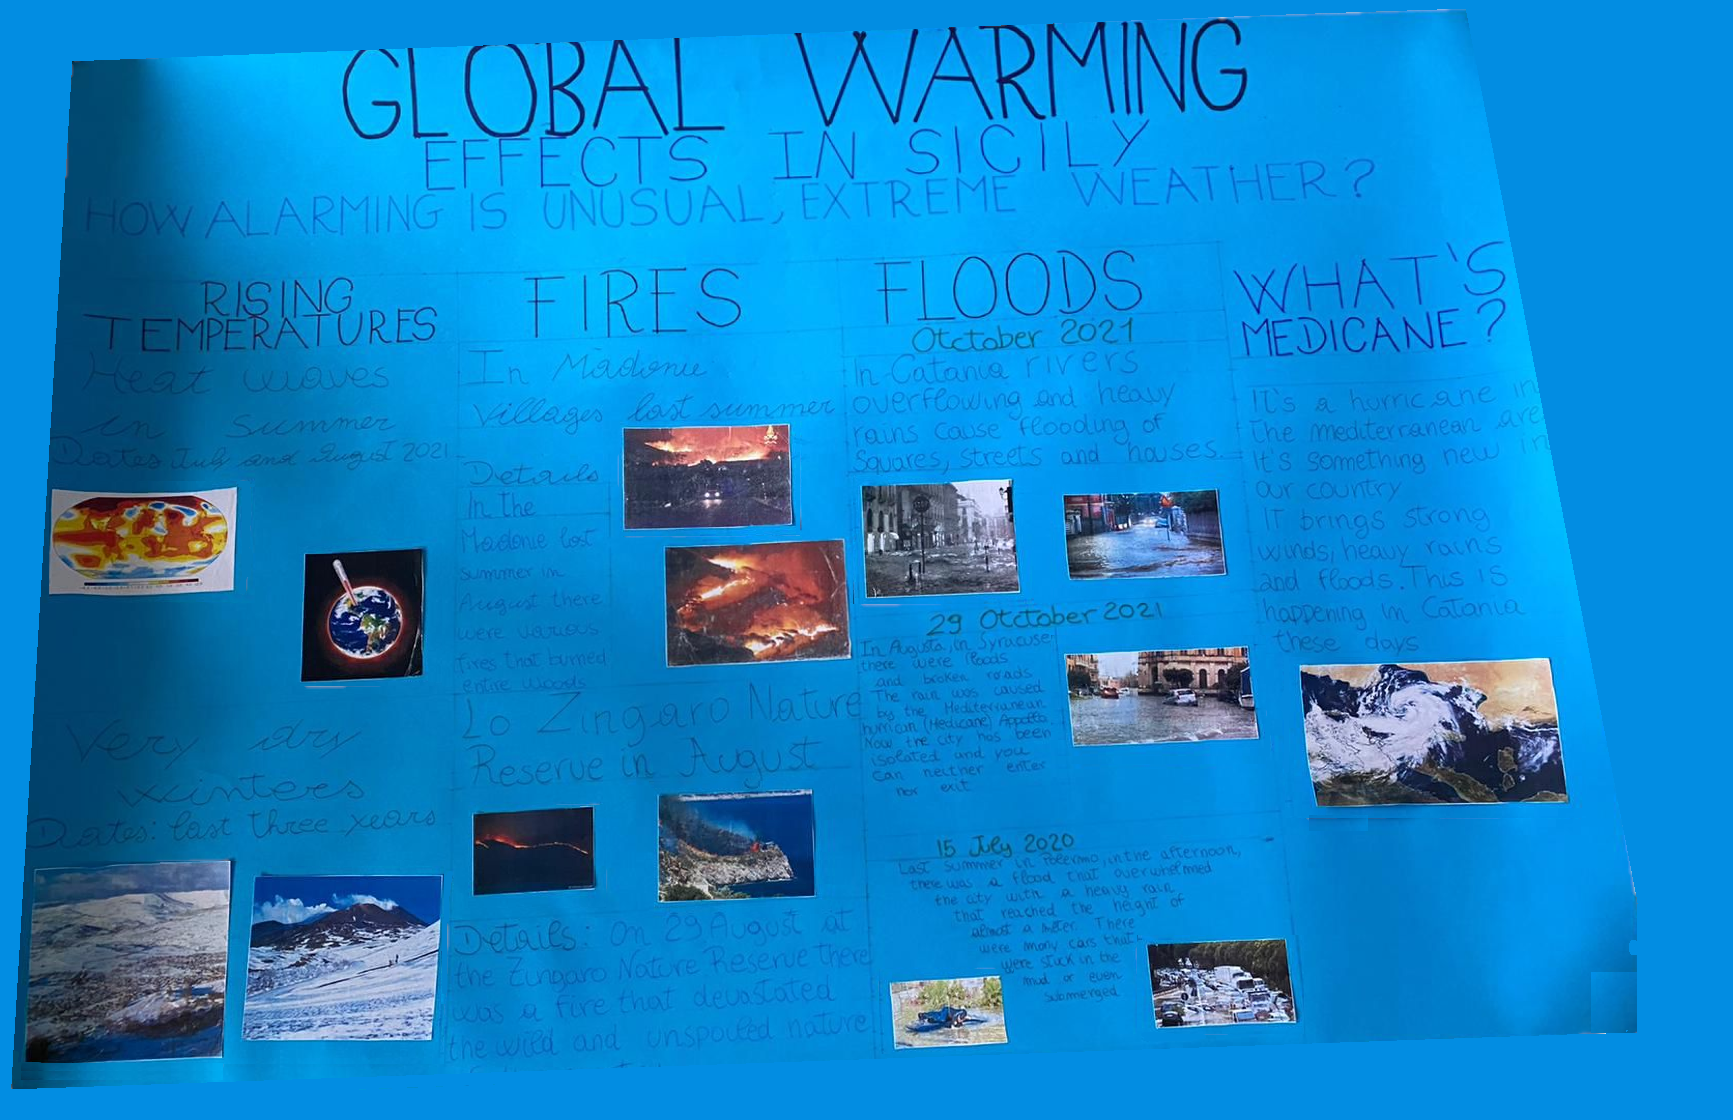 GLOBAL WARMING
EFFECTS IN SICILY
HOW ALARMING IS UNUSUAL, EXTREME WEATHER?
RISING
TEMPERATURES
Heat waves
in summer
Dates July and August 2021
Very dry
winters
Dates: last three years
FIRES
In Madonie
Villages last summer
Details
In the
Madonie last
summer in
August there
were various
fires that burned
entire woods
Lo Zingaro Nature
Reserve in August
Details: On 29 August at
the Zingaro Nature Reserve there
was a fire that devastated
the wild and unspoiled nature
FLOODS
Otctober 2021
In Catania rivers
overflowing and heavy
rains cause flooding of
Squares, streets and houses.
29 Otctober 2021
In Augusta, in Syracuse
there were floods
and broken roads
The rain was caused
by the Mediterranean
hurrican (Medicane) Appollo.
Now the city has been
isolated and you
can neither enter
nor exit
15 July 2020
Last summer in Palermo, in the afternoon,
there was a flood that overwhelmed
the city with a heavy rain
that reached the height of
almost a meter. There
were many cars that
were stuck in the
mud or even
submerged.
WHAT'S
MEDICANE?
It's a hurricane in
the mediterranean are
It's something new in
our country
IT brings strong
winds, heavy rains
and floods. This is
happening in Catania
these days